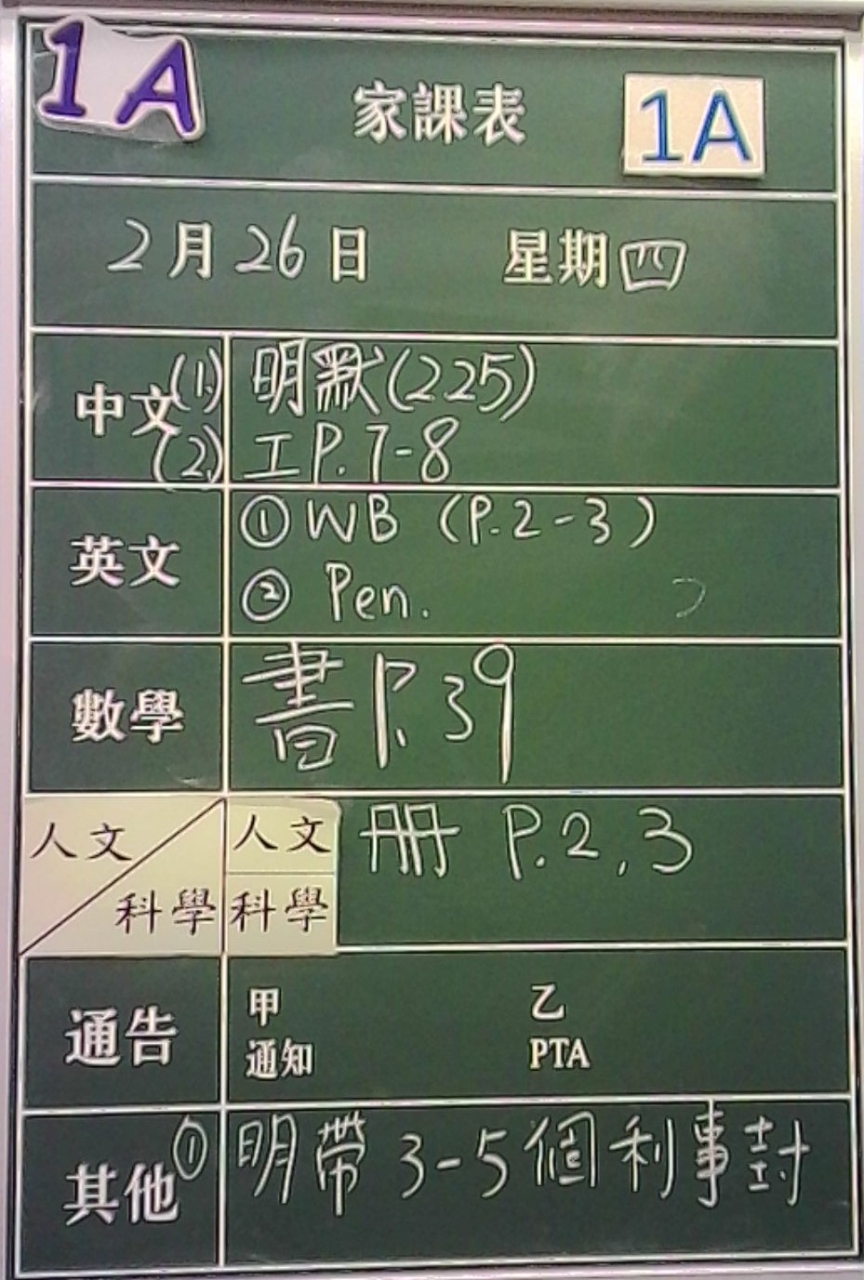 1A
家課表 1A
2月26日 星期四
中文 (1) 明默(225)
(2) 工P.7-8
英文 ① WB (P.2-3)
② Pen.
數學 書P.39
人文 人文 冊 P.2,3
科學 科學
通告 甲 乙
通知 PTA
其他 ① 明帶3-5個利事封